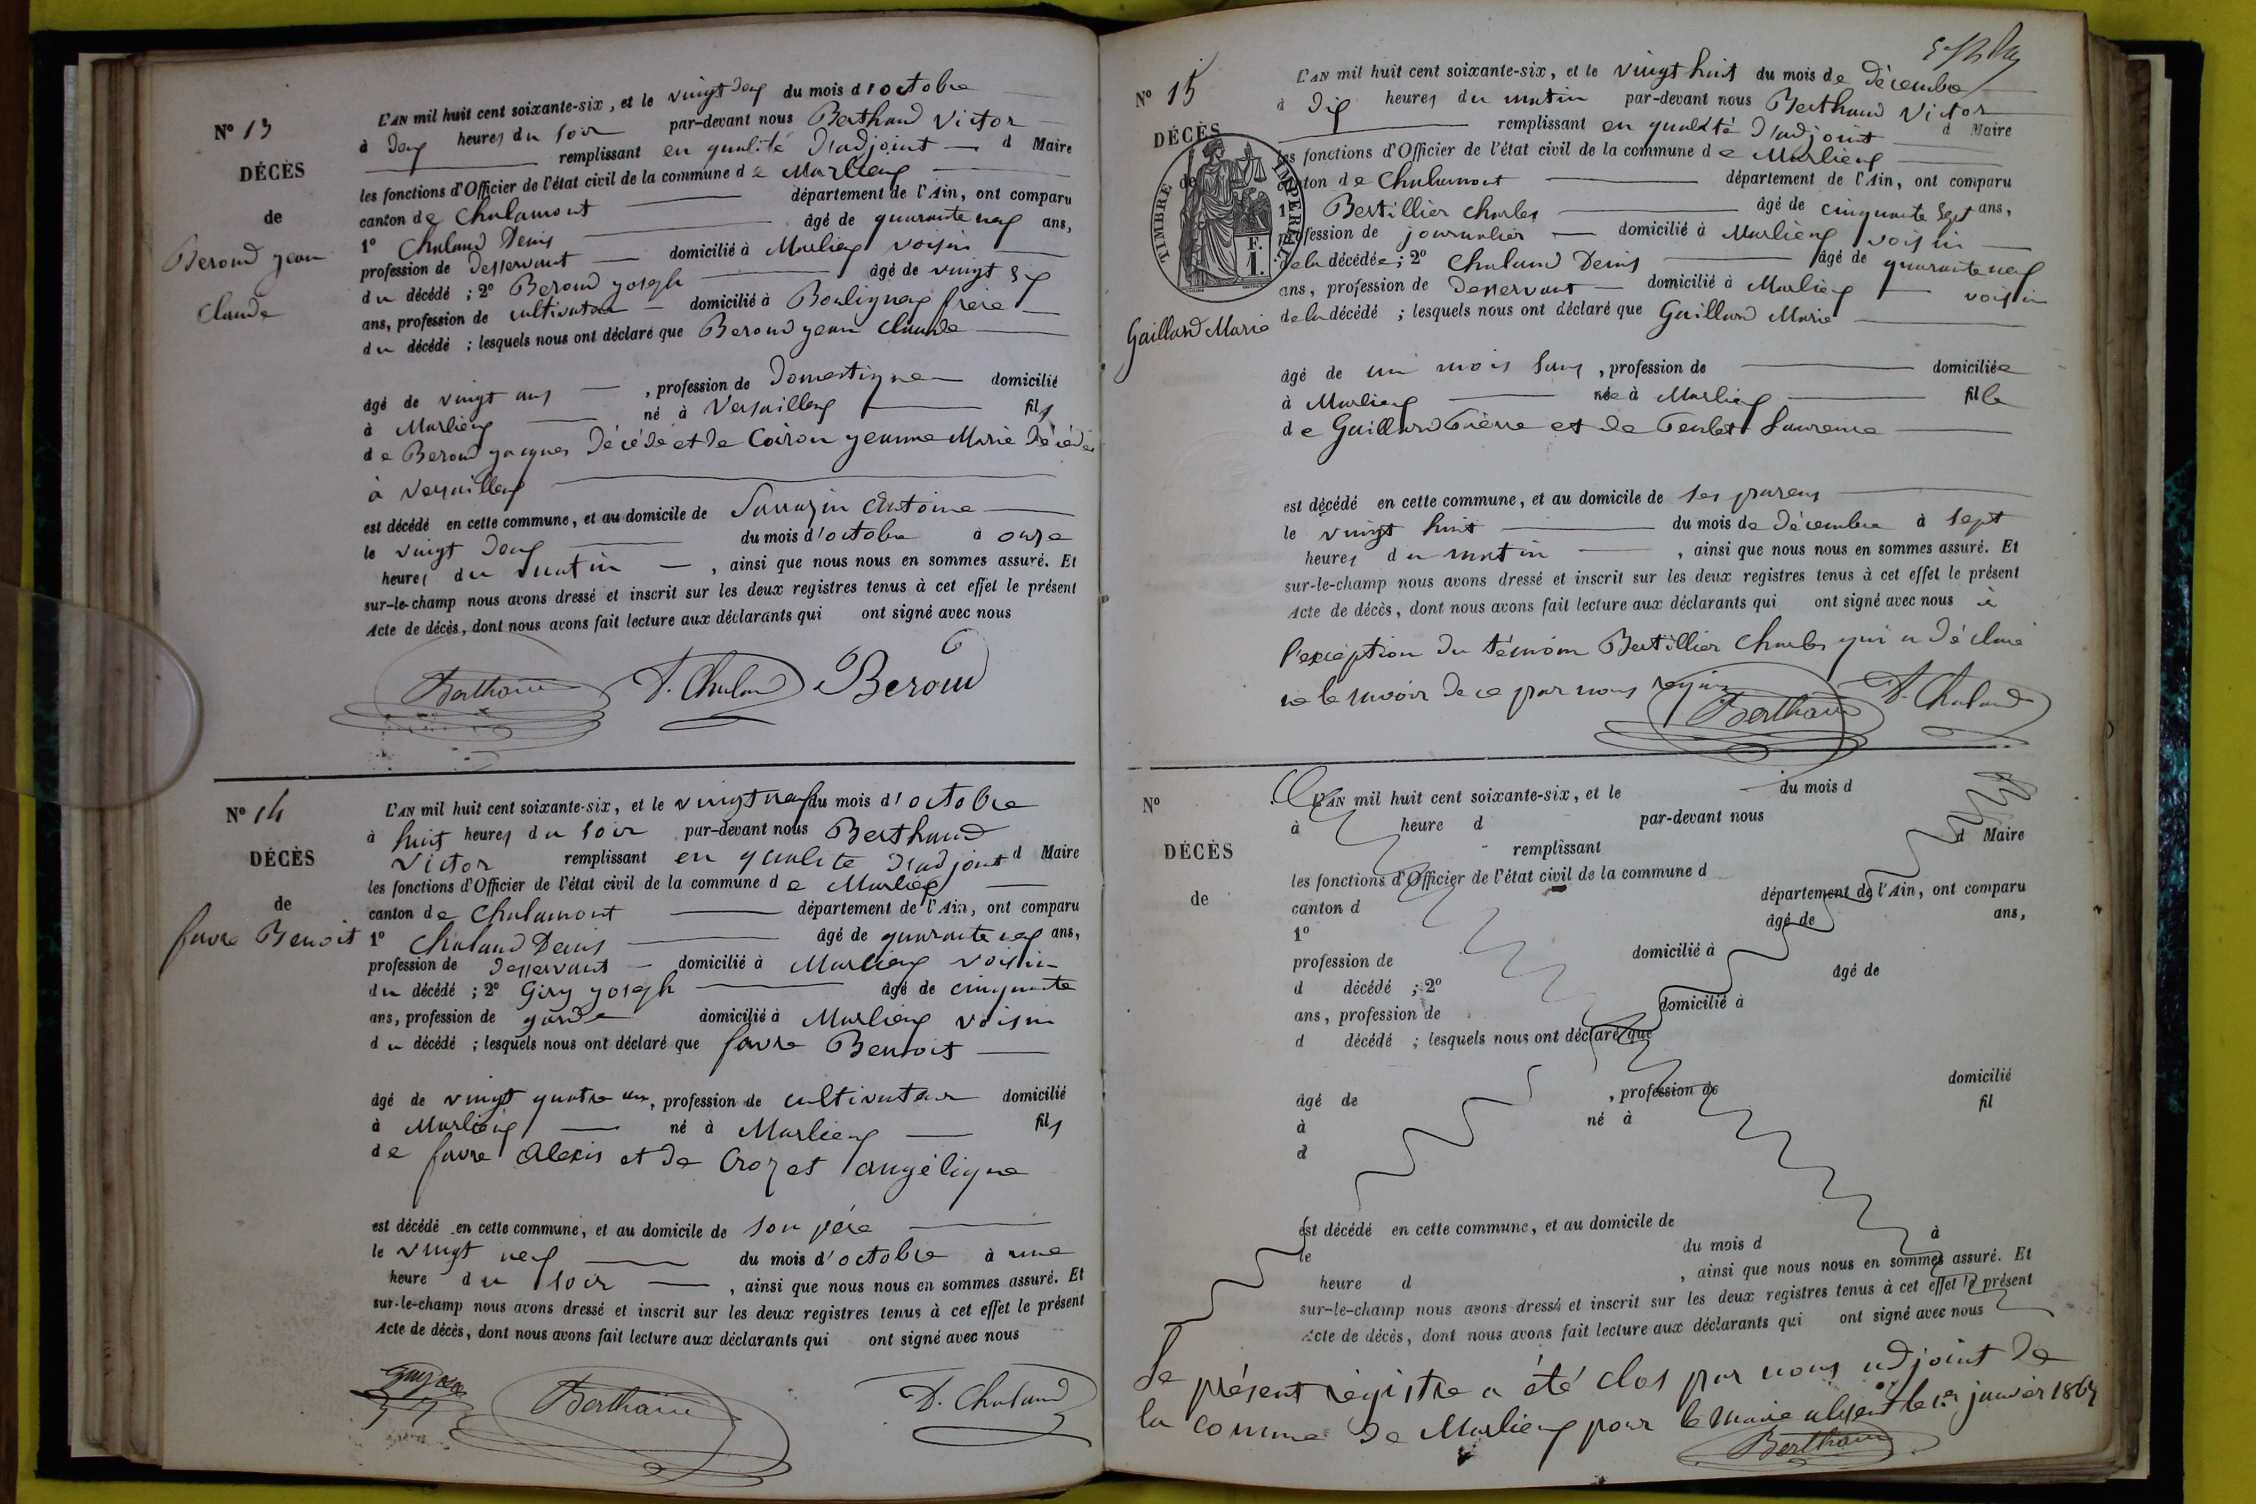 N° 13
DÉCÈS
de
Beroud jean
Claude
L'AN mil huit cent soixante-six, et le vingt deux du mois d'octobre
à deux heures du soir par-devant nous Berthaud Victor
remplissant en qualité d'adjoint d Maire
les fonctions d'Officier de l'état civil de la commune de Marlieux
canton de Chalamont département de l'Ain, ont comparu
1° Chaland Denis âgé de quarante neuf ans,
profession de desservant domicilié à Marlieux voisin
du décédé ; 2° Beroud joseph âgé de vingt six
ans, profession de cultivateur domicilié à Bouligneux frère
du décédé ; lesquels nous ont déclaré que Beroud jean claude
âgé de vingt ans , profession de domestique domicilié
à Marlieux né à Versailleux fils
de Beroud jacques décédé et de Coiron jeanne Marie décédée
à Versailleux
est décédé en cette commune, et au domicile de Sarrazin Antoine
le vingt deux du mois d'octobre à onze
heures du matin , ainsi que nous nous en sommes assuré. Et
sur-le-champ nous avons dressé et inscrit sur les deux registres tenus à cet effet le présent
Acte de décès, dont nous avons fait lecture aux déclarants qui ont signé avec nous
Berthaud D. Chaland Beroud
N° 14
DÉCÈS
de
favre Benoit
L'AN mil huit cent soixante-six, et le vingt neuf du mois d'octobre
à huit heures du soir par-devant nous Berthaud
Victor remplissant en qualité d'adjoint d Maire
les fonctions d'Officier de l'état civil de la commune de Marlieux
canton de Chalamont département de l'Ain, ont comparu
1° Chaland Denis âgé de quarante neuf ans,
profession de desservant domicilié à Marlieux voisin
du décédé ; 2° Giry joseph âgé de cinquante
ans, profession de garde domicilié à Marlieux voisin
du décédé ; lesquels nous ont déclaré que favre Benoit
âgé de vingt quatre ans, profession de cultivateur domicilié
à Marlieux né à Marlieux fils
de favre Alexis et de Crozet angélique
est décédé en cette commune, et au domicile de son père
le vingt neuf du mois d'octobre à une
heure du soir , ainsi que nous nous en sommes assuré. Et
sur-le-champ nous avons dressé et inscrit sur les deux registres tenus à cet effet le présent
Acte de décès, dont nous avons fait lecture aux déclarants qui ont signé avec nous
Berthaud D. Chaland
N° 15
DÉCÈS
de
TIMBRE IMPERIAL
F.
1.
Gaillard Marie
L'AN mil huit cent soixante-six, et le vingt huit du mois de décembre
à dix heures du matin par-devant nous Berthaud Victor
remplissant en qualité d'adjoint d Maire
les fonctions d'Officier de l'état civil de la commune de Marlieux
canton de Chalamont département de l'Ain, ont comparu
1° Bertillier charles âgé de cinquante sept ans,
profession de journalier domicilié à Marlieux voisin
de la décédée ; 2° Chaland Denis âgé de quarante neuf
ans, profession de desservant domicilié à Marlieux voisin
de la décédé ; lesquels nous ont déclaré que Gaillard Marie
âgé de un mois sans , profession de domiciliée
à Marlieux née à Marlieux fille
de Gaillard Pierre et de Laurence
est décédé en cette commune, et au domicile de ses parens
le vingt huit du mois de décembre à sept
heures du matin , ainsi que nous nous en sommes assuré. Et
sur-le-champ nous avons dressé et inscrit sur les deux registres tenus à cet effet le présent
Acte de décès, dont nous avons fait lecture aux déclarants qui ont signé avec nous à
l'exception du témoin Bertillier Charles qui a déclaré
ne le savoir de ce par nous requis
Berthaud D. Chaland
N°
DÉCÈS
de
L'AN mil huit cent soixante-six, et le du mois d
à heure d par-devant nous
remplissant d Maire
les fonctions d'Officier de l'état civil de la commune d
canton d département de l'Ain, ont comparu
1° âgé de ans,
profession de domicilié à
d décédé ; 2° âgé de
ans, profession de domicilié à
d décédé ; lesquels nous ont déclaré que
âgé de , profession de domicilié
à né à fil
d
est décédé en cette commune, et au domicile de
le du mois d à
heure d , ainsi que nous nous en sommes assuré. Et
sur-le-champ nous avons dressé et inscrit sur les deux registres tenus à cet effet le présent
Acte de décès, dont nous avons fait lecture aux déclarants qui ont signé avec nous
Le présent registre a été clos par nous adjoint de
la commune de Marlieux pour le maire absent le 1er janvier 1867
Berthaud